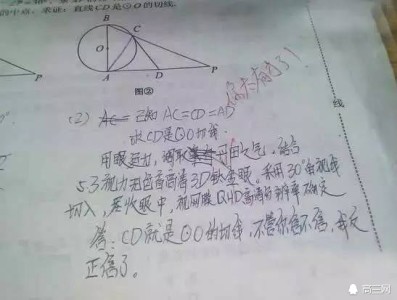 的中点，求证：直线CD是⊙O的切线.
B
C
O
A
D
P
P
图②
你太有才了！
(2) 已知 AC=CD=AD
求CD是⊙O切线.
用眼
5.3视力 高清3D钛金眼, 采用30°角视线
切入, 眼中, 视网膜QHD高清分辨率确定
答: CD就是⊙O的切线, 不管你信不信, 我反
正信了.
线
高三网